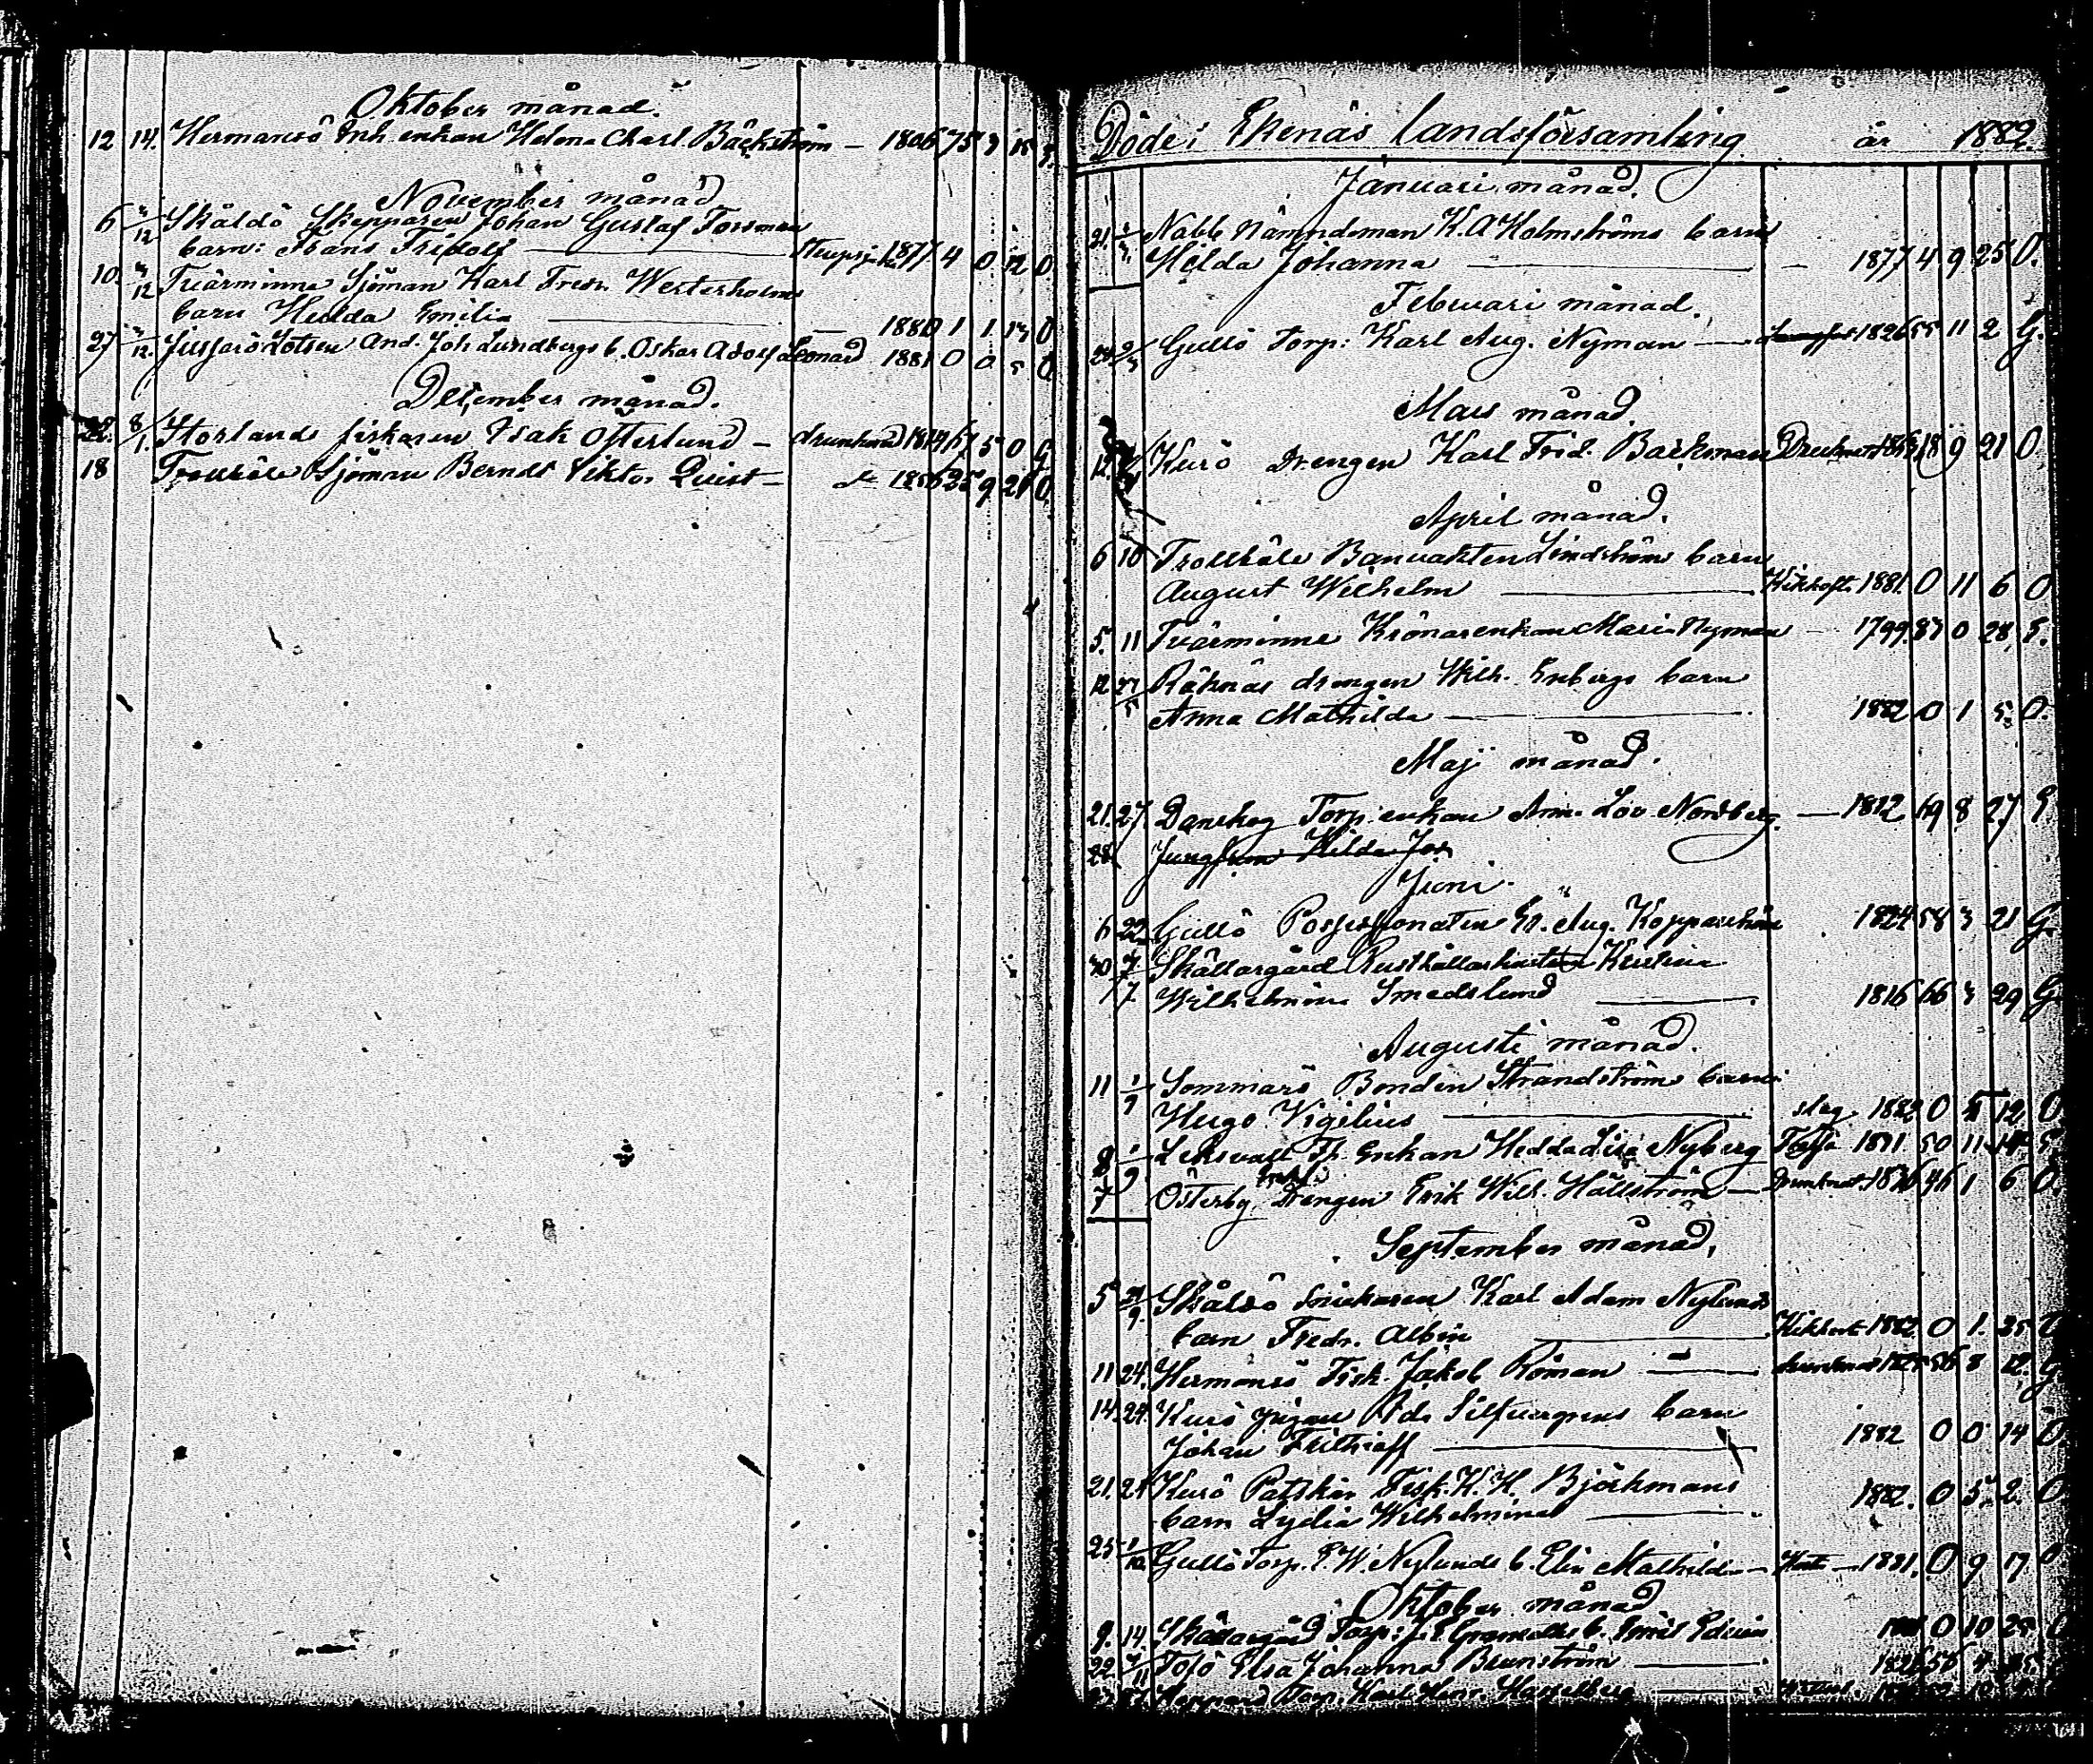 Oktober månad.
12 14. Hermansö Inh. enkan Helena Charl. Bäckström — 1806 75 3 18 E.
November månad
6 4/12 Skåldö Skepparen Johan Gustaf Forsman
barn: Frans Fridolf — Strupsjuka 1877 4 0 12 O
10. 4/12 Tvärminne Sjöman Karl Fredr. Westerholms
barn Hulda Emilia — 1880 1 1 13 O
27 4/12. Jussarö Lotsen And. Joh. Lundbergs b. Oskar Adolf Leonard 1881 0 0 5 O
December månad.
22. 8/1. Storlands fiskaren Isak Österlund — drunknad 1814 67 5 0 G
18 Trollböle Sjöman Berndt Viktor Qvist — do 1856 25 9 21 O.
Döde i Ekenäs landsförsamling år 1882.
Januari månad.
21. Nabb Nämndeman K. A Holmströms barn
Hilda Johanna — 1877 4 9 25 O.
Februari månad.
Gullö Torp: Karl Aug. Nyman — 1826 55 11 2 G.
Mars månad.
12. Kurö Drengen Karl Frid. Backman Drunknat 1863 18 9 21 O.
April månad.
6 10 Trollböle Banvakten Lindströms barn
August Wilhelm — Kikhosta 1881. 0 11 6 O
5. 11 Tvärminne Krönarenkan Maria Nyman — 1799. 83 0 28. E.
12 27/5 Råknäs drengen Wilh. Enbergs barn
Anna Mathilda — 1882 0 1 5. O.
Maj månad.
21. 27. Danskog Torp. enkan Ann. Lov. Nordberg. — 1812 69 8 27 E.
28 Jungfrun Hilda Joh
Juni
6 22 Gullö Possessionaten Er. Aug. Kopparström 1824 58 3 21 G.
30 7/7 Skällargård Rusthållarhustrun Kristina
Wilhelmina Smedslund — 1816 66 3 29 G.
Augusti månad.
11 1/9 Sommarö Bonden Strandströms barn
Hugo Vigilius — slag 1882 0 5 12 O
8 1/9 Leksvall Th. Enkan Hedda Lisa Nyberg 50 11 E.
7 Österby Drengen Erik Wilh. Hällström — Drunknat 1836 46 1 6 O.
September månad.
5 24/9. Skåldö Snickaren Karl Adam Nylunds
barn Fredr. Albin — Kikhost 1882 0 1. 25 O
11 24. Hermansö Fisk. Jakob Röman — drunknat 56 8 12. G
14. 24. Kurö Silfvergrens barn
Johan Frithioff — 1882 0 0 14 O.
21. 24 Kurö Patskär Fisk. K. H. Björkmans
barn Lydia Wilhelmina — 1882. 0 5. 2. O
25 1/10 Gullö Torp. E. W. Nylunds b. Elin Mathilda — 1881. 0 9 17 O
Oktober månad
9. 14. Skällargård Torp: b. Emil Edvin 0 10 O
22. 4/11 Tofö Elsa Johanna Brunström — 56 4
Torp. Karl Hasselberg —